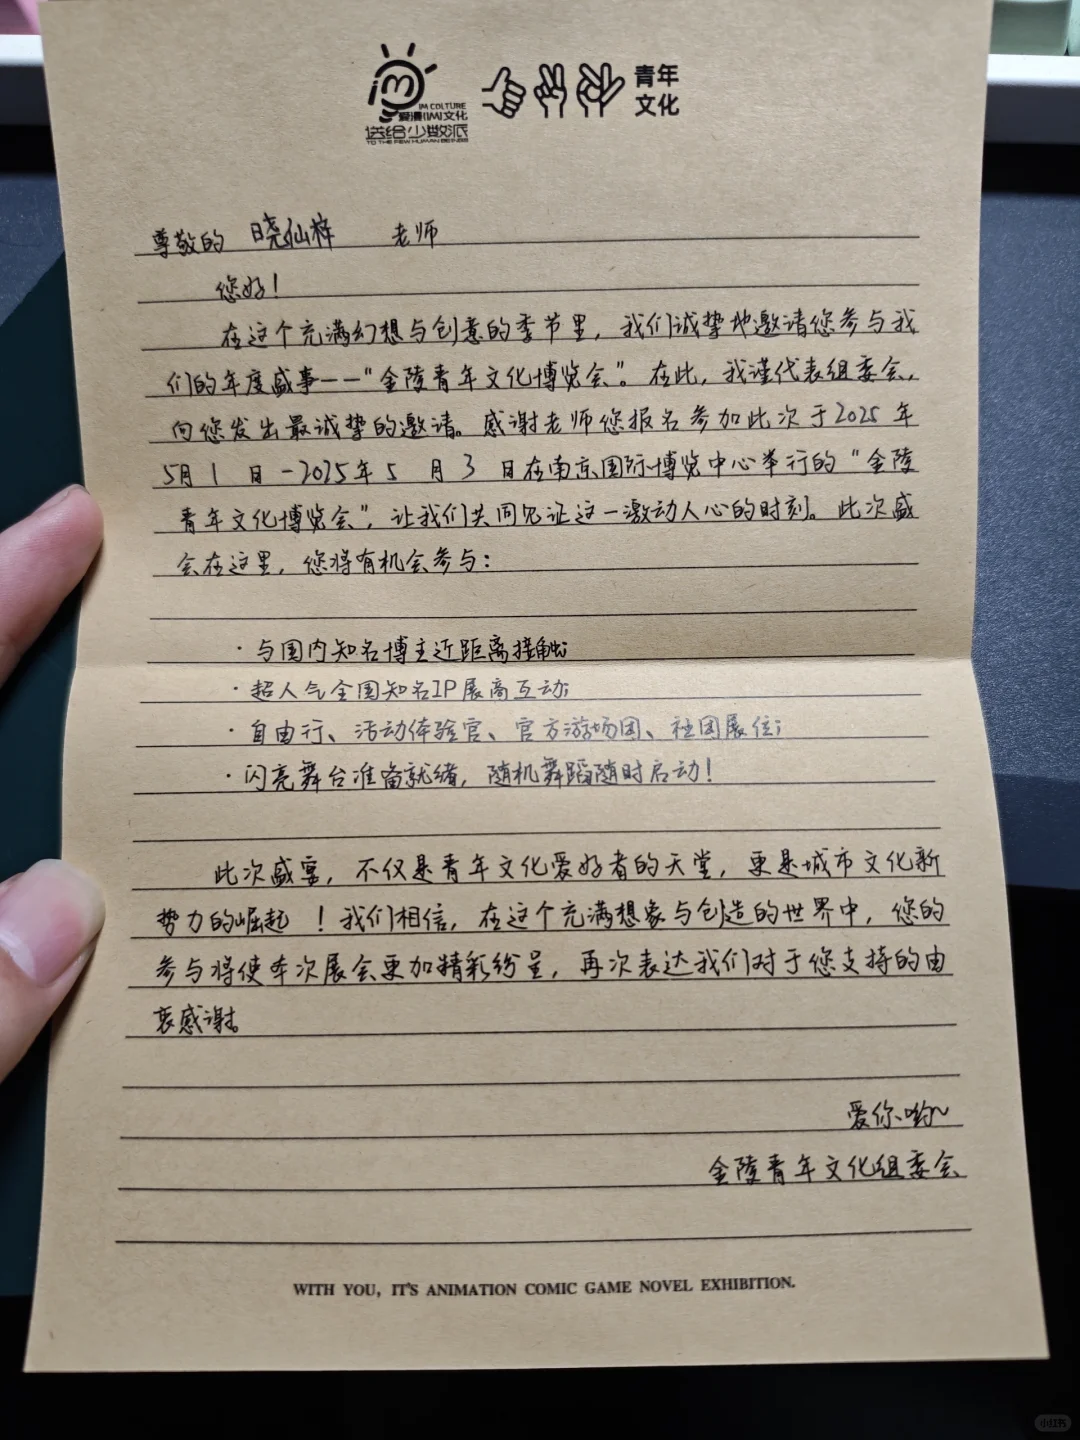 iM
IM COLTURE
爱漫(IM)文化
送给少数派
TO THE FEW HUMAN BEINGS
青年
文化
尊敬的 晓仙梓 老师
您好!
在这个充满幻想与创意的季节里，我们诚挚地邀请您参与我
们的年度盛事——“金陵青年文化博览会”。在此，我谨代表组委会，
向您发出最诚挚的邀请。感谢老师您报名参加此次于2025年
5月1日-2025年5月3日在南京国际博览中心举行的“金陵
青年文化博览会”，让我们共同见证这一激动人心的时刻。此次盛
会在这里，您将有机会参与：
·与国内知名博主近距离接触;
·超人气全国知名IP展商互动;
·自由行、活动体验官、官方游场团、社团展位;
·闪亮舞台准备就绪，随机舞蹈随时启动!
此次盛宴，不仅是青年文化爱好者的天堂，更是城市文化新
势力的崛起！我们相信，在这个充满想象与创造的世界中，您的
参与将使本次展会更加精彩纷呈，再次表达我们对于您支持的由
衷感谢。
爱你哟~
金陵青年文化组委会
WITH YOU, IT'S ANIMATION COMIC GAME NOVEL EXHIBITION.
小红书